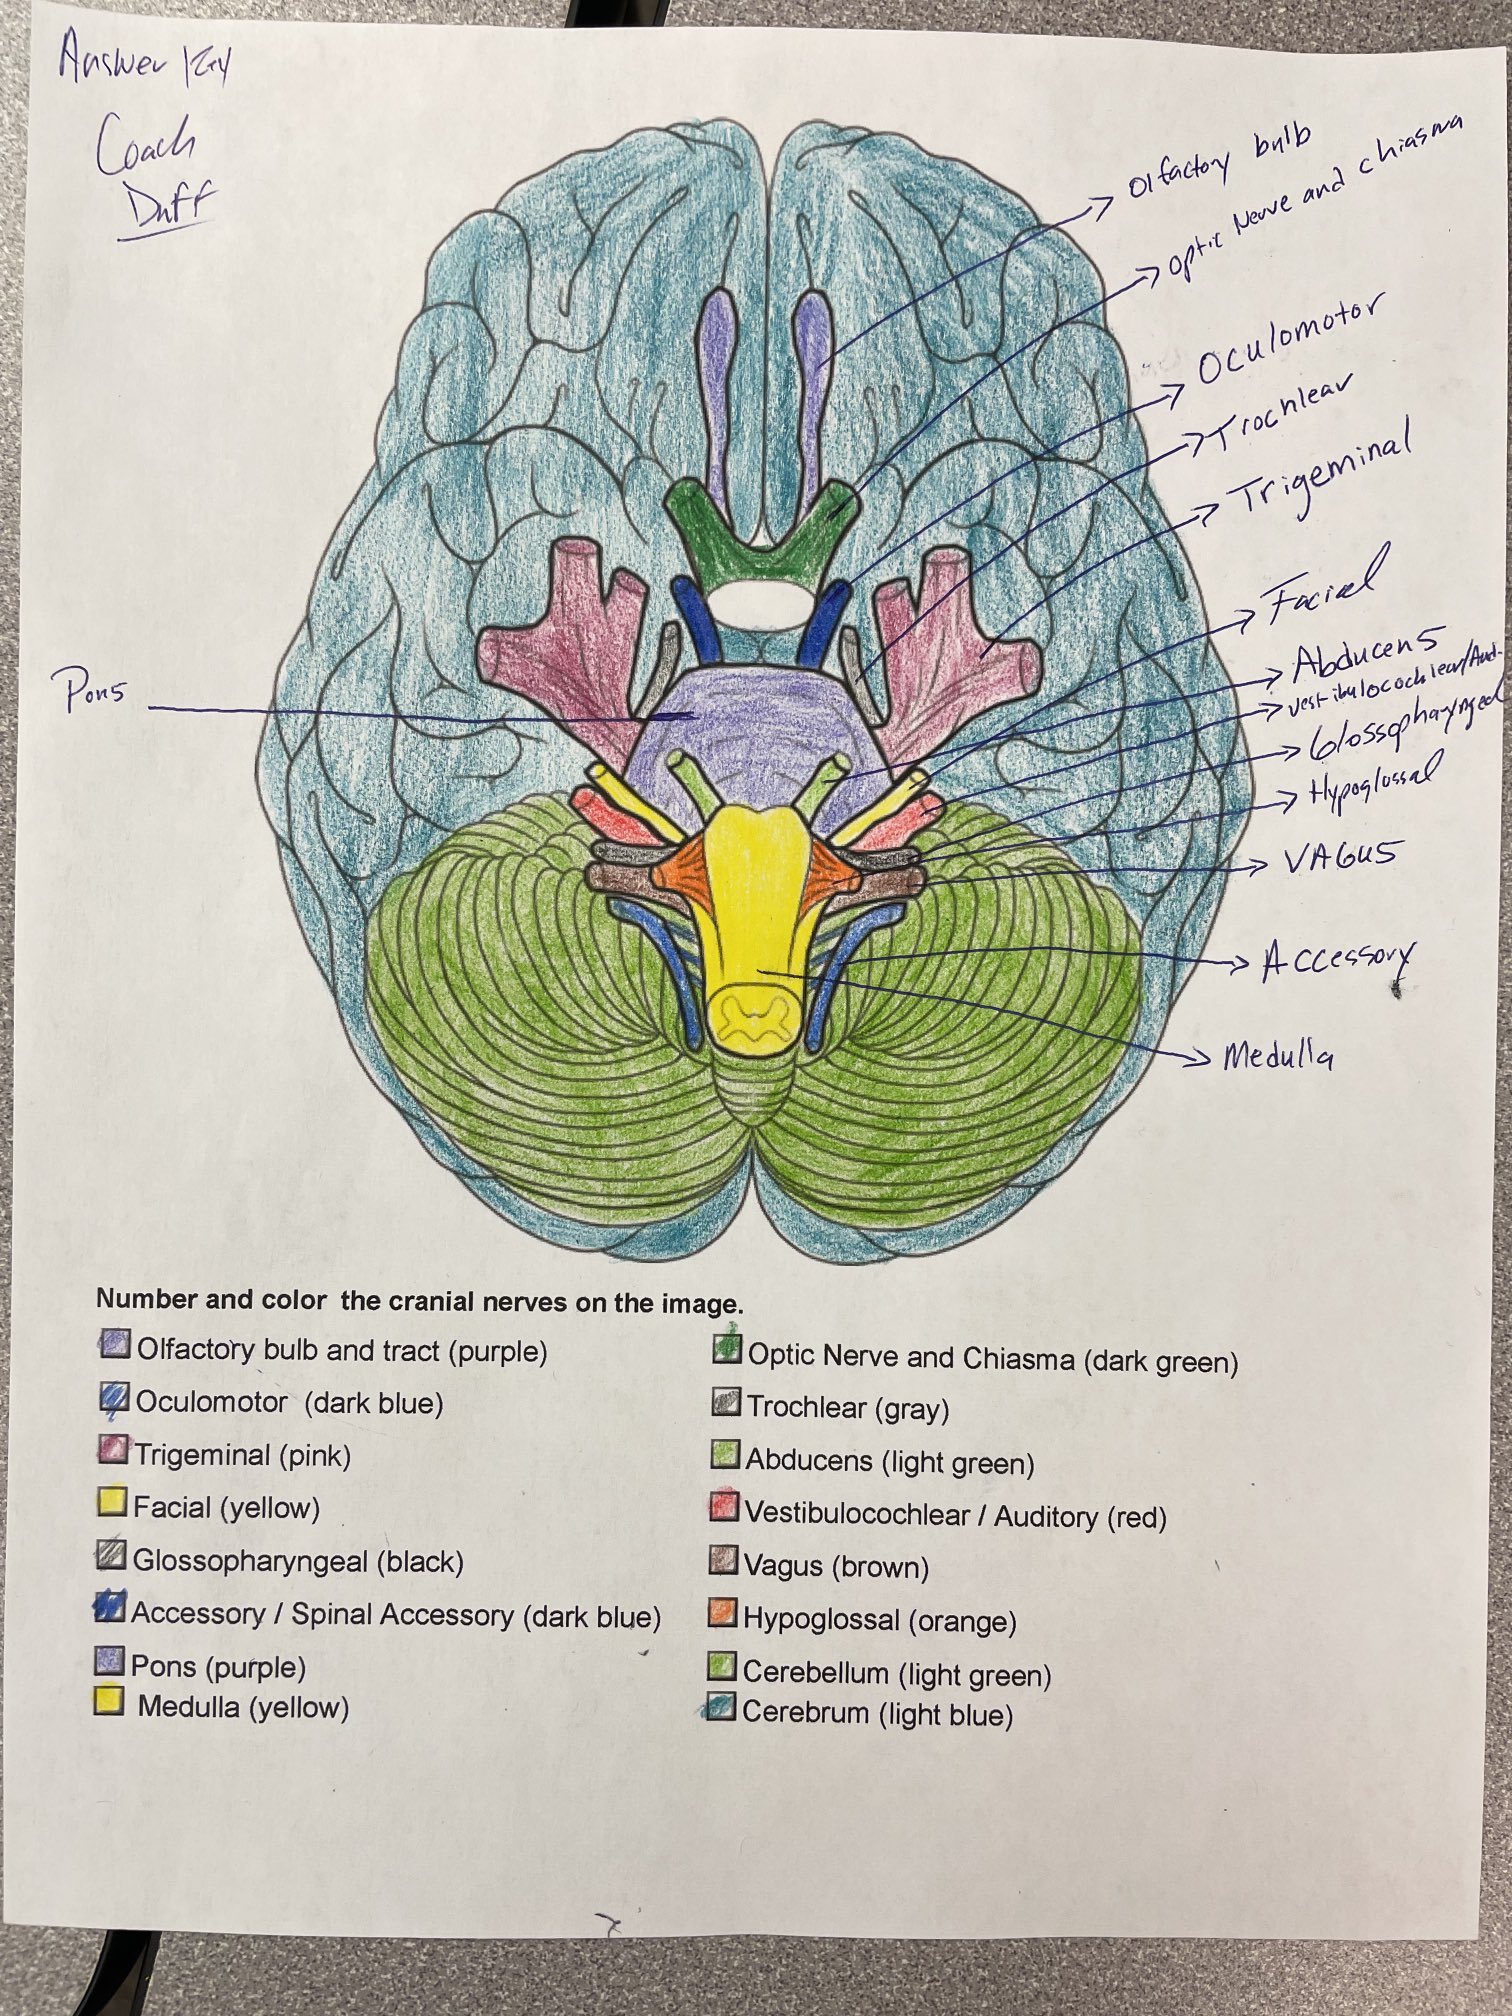 Answer Key
Coach
Duff
Olfactory bulb
optic Nerve and chiasma
Oculomotor
Trochlear
Trigeminal
Facial
Abducens
Vestibulocochlear/Aud-
Glossopharyngeal
Hypoglossal
VAGUS
Accessory
Medulla
Pons
Number and color the cranial nerves on the image.
Olfactory bulb and tract (purple)
Oculomotor (dark blue)
Trigeminal (pink)
Facial (yellow)
Glossopharyngeal (black)
Accessory / Spinal Accessory (dark blue)
Pons (purple)
Medulla (yellow)
Optic Nerve and Chiasma (dark green)
Trochlear (gray)
Abducens (light green)
Vestibulocochlear / Auditory (red)
Vagus (brown)
Hypoglossal (orange)
Cerebellum (light green)
Cerebrum (light blue)